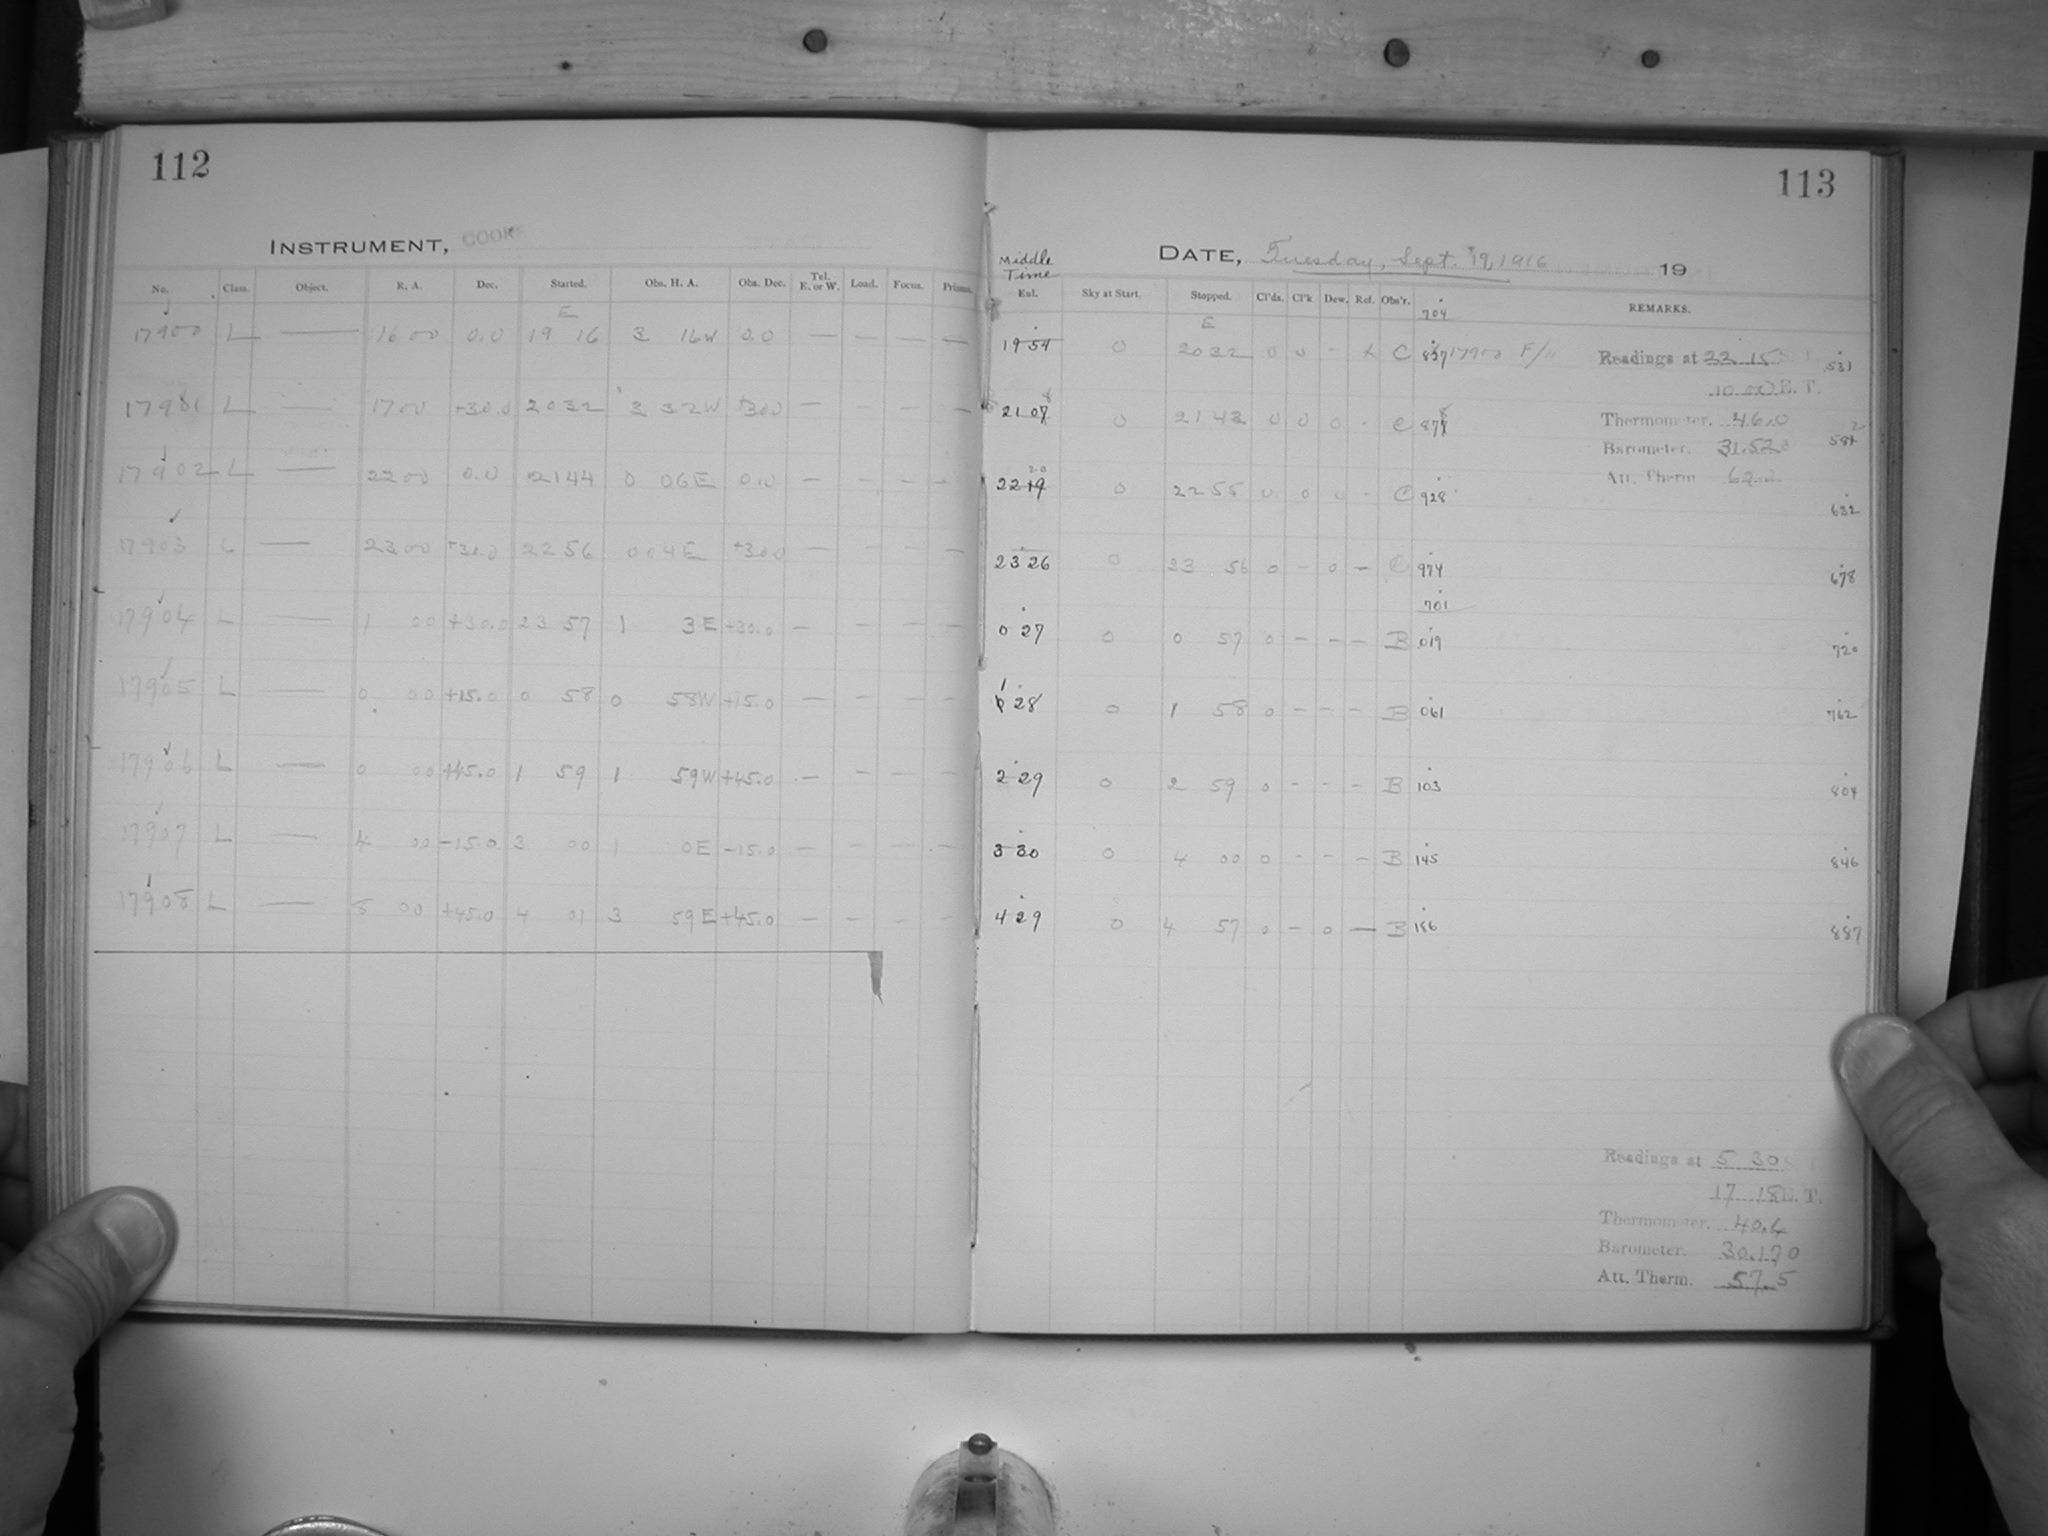 112
INSTRUMENT, COOKE
No. Class. Object. R. A. Dec. Started. Obs. H. A. Obs. Dec. Tel. E. or W. Load. Focus. Prisms.
E
17900 L — 16 00 0.0 19 16 3 16W 0.0 — — — —
17901 L — 17 00 +30.0 20 32 3 32W +30.0 — — — —
17902 L — 22 00 0.0 21 44 0 06E 0.0 — — — —
17903 L — 23 00 +30.0 22 56 0 04E +30.0 — — — —
17904 L — 1 00 +30.0 23 57 1 3E +30.0 — — — —
17905 L — 0 00 +15.0 0 58 0 58W +15.0 — — — —
17906 L — 0 00 +45.0 1 59 1 59W +45.0 — — — —
17907 L — 4 00 -15.0 3 00 1 0E -15.0 — — — —
17908 L — 8 00 +45.0 4 01 3 59E +45.0 — — — —
113
DATE, Tuesday, Sept. 19, 1916 19
Middle Time
Exl. Sky at Start. Stopped. Cl'ds. Cl'k Dew. Ref. Obs'r. REMARKS.
E 704
19 54 0 20 32 0 0 - C 827 17900 F/11 531
21 07 8 0 21 43 0 0 0 - C 87 582
22 19 20 0 22 55 0 0 0 - C 928 632
23 26 0 23 56 0 - 0 - C 974 678
701
0 27 0 0 57 0 - - - B 019 720
1 28 0 1 58 0 - - - B 061 762
2 29 0 2 59 0 - - - B 103 804
3 30 0 4 00 0 - - - B 145 846
4 29 0 4 57 0 - 0 — B 186 887
Readings at 22 15 S. T.
10.00 E. T.
Thermometer. 46.0
Barometer. 31.520
Att. Therm 62.0
Readings at 5 30 S. T.
17 18 E. T.
Thermometer. 40.6
Barometer. 30.170
Att. Therm. 57.5